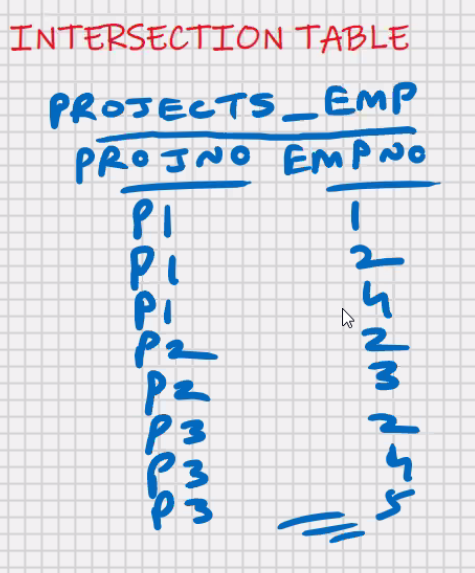 INTERSECTION TABLE
PROJECTS_EMP
PROJNO EMPNO
P1 1
P1 2
P1 4
P2 2
P2 3
P3 2
P3 4
P3 5